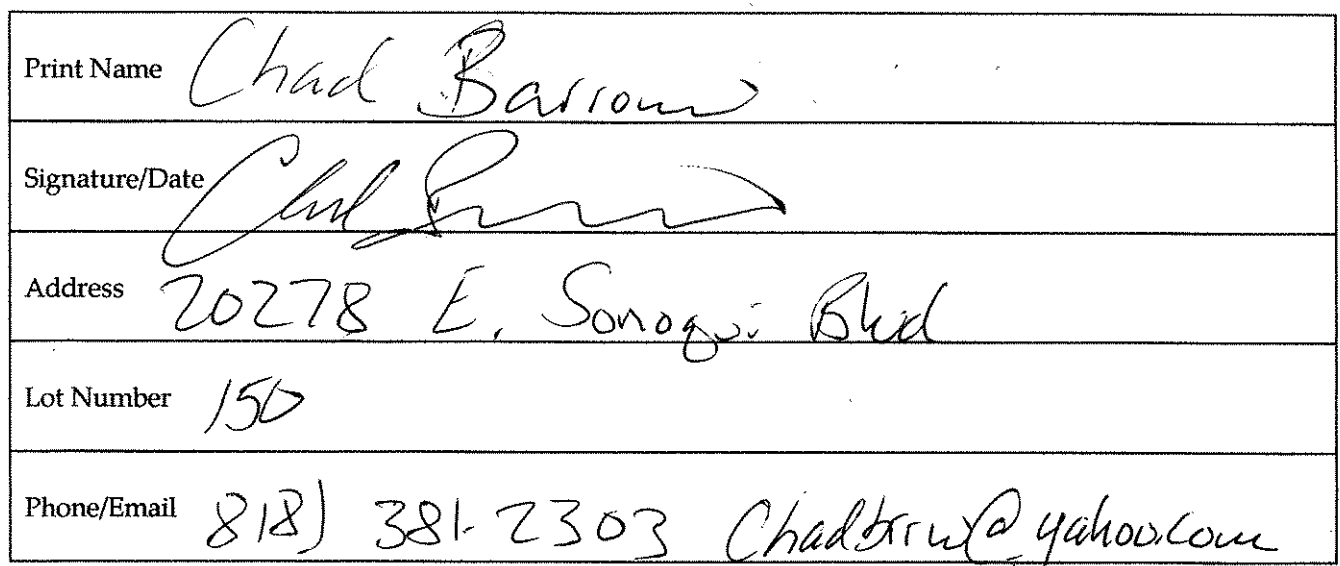 Print Name Chad Barrow
Signature/Date Chad
Address 20278 E. Sonoqui Blvd
Lot Number 150
Phone/Email 818) 381-2303 Chadbrrw@yahoo.com